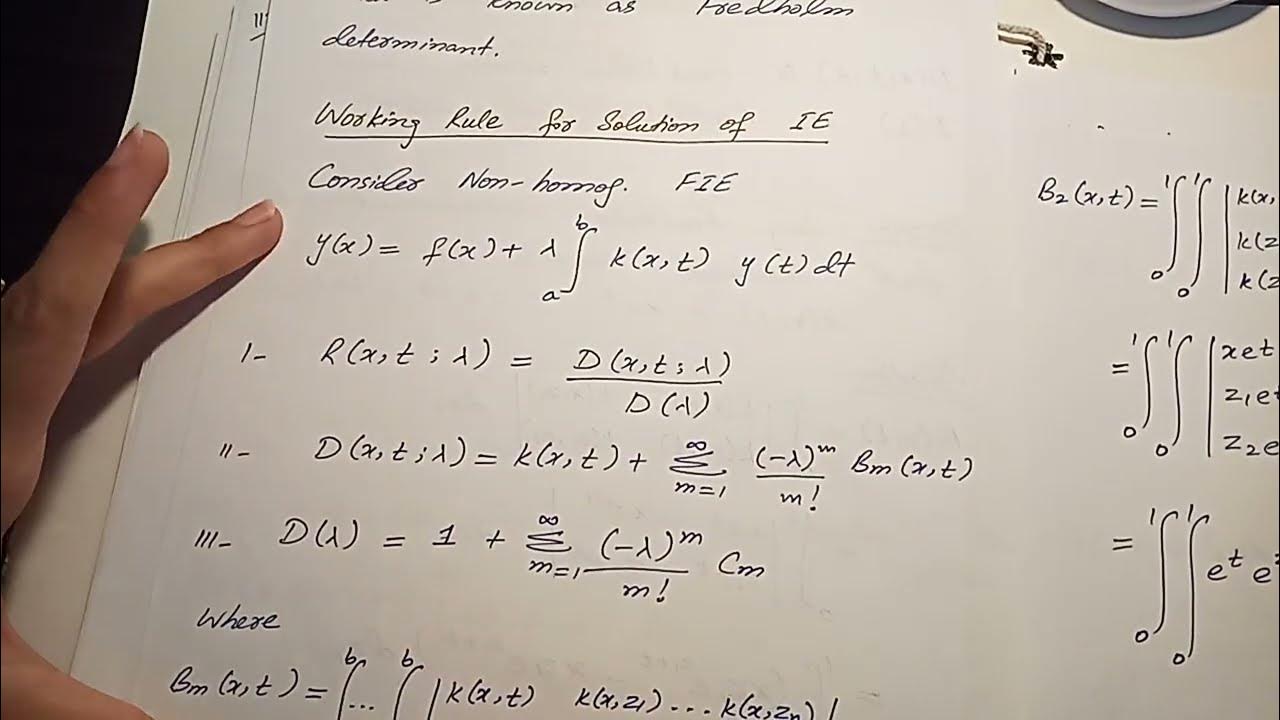 is known as Fredholm
determinant.
Working Rule for Solution of IE
Consider Non-homog. FIE
y(x) = f(x) + λ ∫_a^b k(x,t) y(t) dt
I- R(x,t;λ) = D(x,t;λ) / D(λ)
II- D(x,t;λ) = k(x,t) + Σ_{m=1}^∞ (-λ)^m / m! Bm(x,t)
III- D(λ) = 1 + Σ_{m=1}^∞ (-λ)^m / m! Cm
Where
Bm(x,t) = ∫^b ... ∫^b | k(x,t) k(x,z1) ... k(x,zn) |
III
B2(x,t) = ∫_0^1 ∫_0^1 | k(x,
k(z
k(z
= ∫_0^1 ∫_0^1 | xet
z1et
z2e
= ∫_0^1 ∫_0^1 e^t e^z